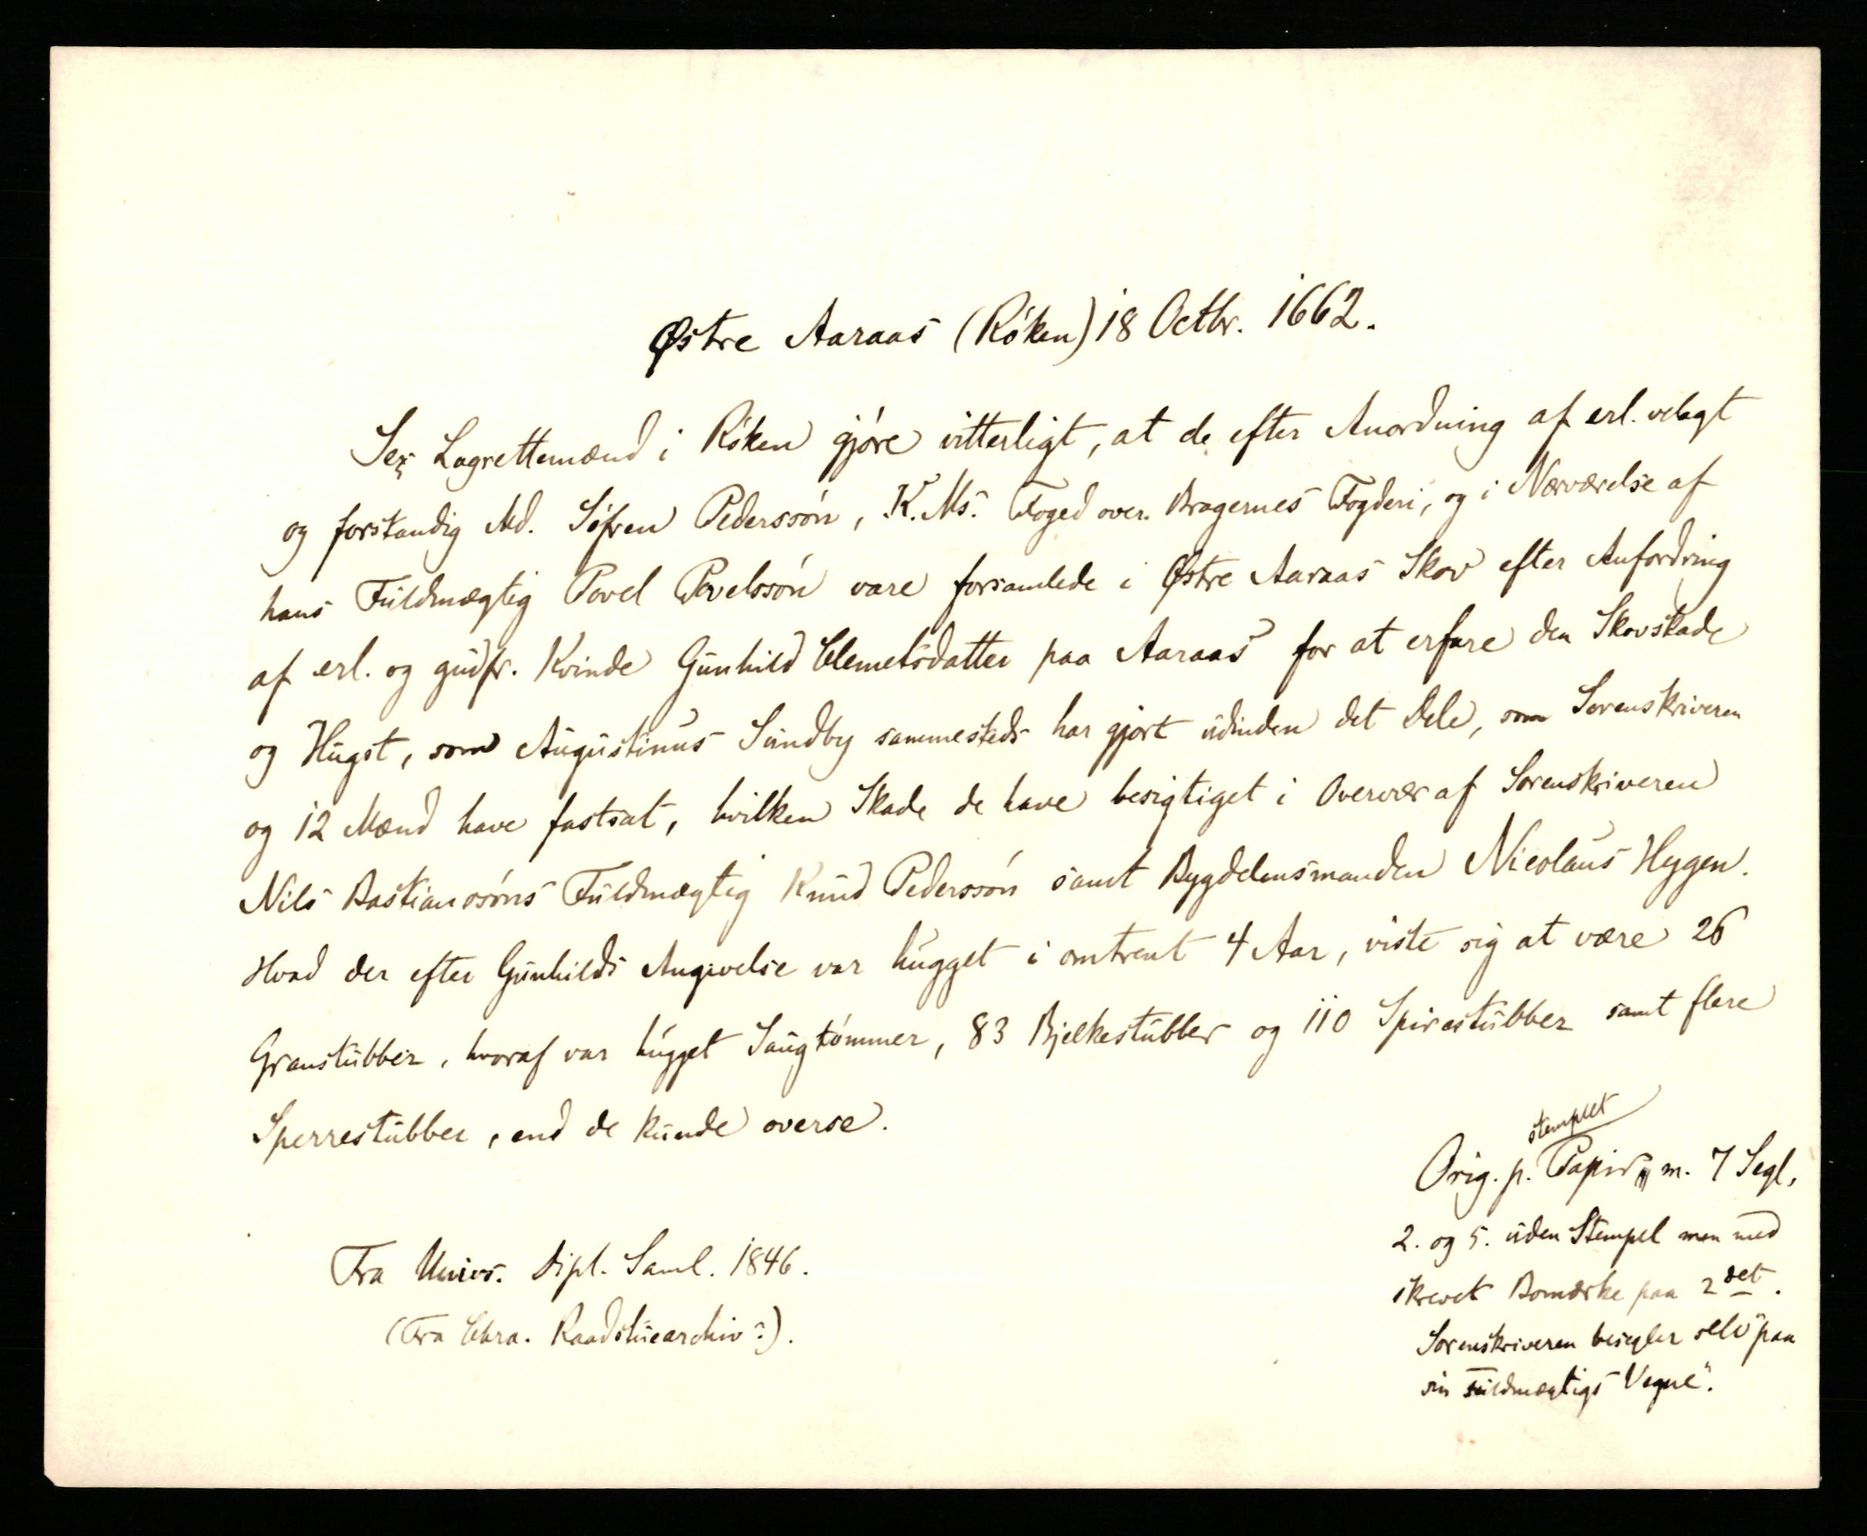 Østre Aaraas (Röken) 18 Octbr. 1662.
Sex Lagrettemænd i Röken gjöre vitterligt, at de efter Anordning af erl. velagt
og forstandig Md. Söfren Pederssön, K. Ms. Foged over Bragernes Fogderi, og i Nærværelse af
hans Fuldmægtig Povel Povelssön vare forsamlede i Østre Aaraas Skov efter Anfordring
af erl. og gudfr. Kvinde Gunhild Clemetsdatter paa Aaraas for at erfare den Skovskade
og Hugst, som Augustinus Sundby sammesteds har gjort udinden det Dele, som Sorenskriveren
og 12 Mænd have fastsat, hvilken Skade de have besigtiget i Overvær af Sorenskriveren
Nils Bastianssöns Fuldmægtig Knud Pederssön samt Bygdelensmanden Nicolaus Hygen.
Hvad der efter Gunhilds Angivelse var hugget i omtrent 4 Aar, viste sig at være 26
Granstubber, hvoraf var hugget Saugtömmer, 83 Bjelkestubber og 110 Spirestubber samt flere
Sperrestubber, end de kunde overse.
stemplet
Orig. p. Papir m. 7 Segl,
2. og 5. uden Stempel men med
skrevet Bomærke paa 2det.
Sorenskriveren besegler selv "paa
sin Fuldmægtigs Vegne".
Fra Univs. Dipl. Saml. 1846.
(Fra Chra. Raadstuearchiv?).